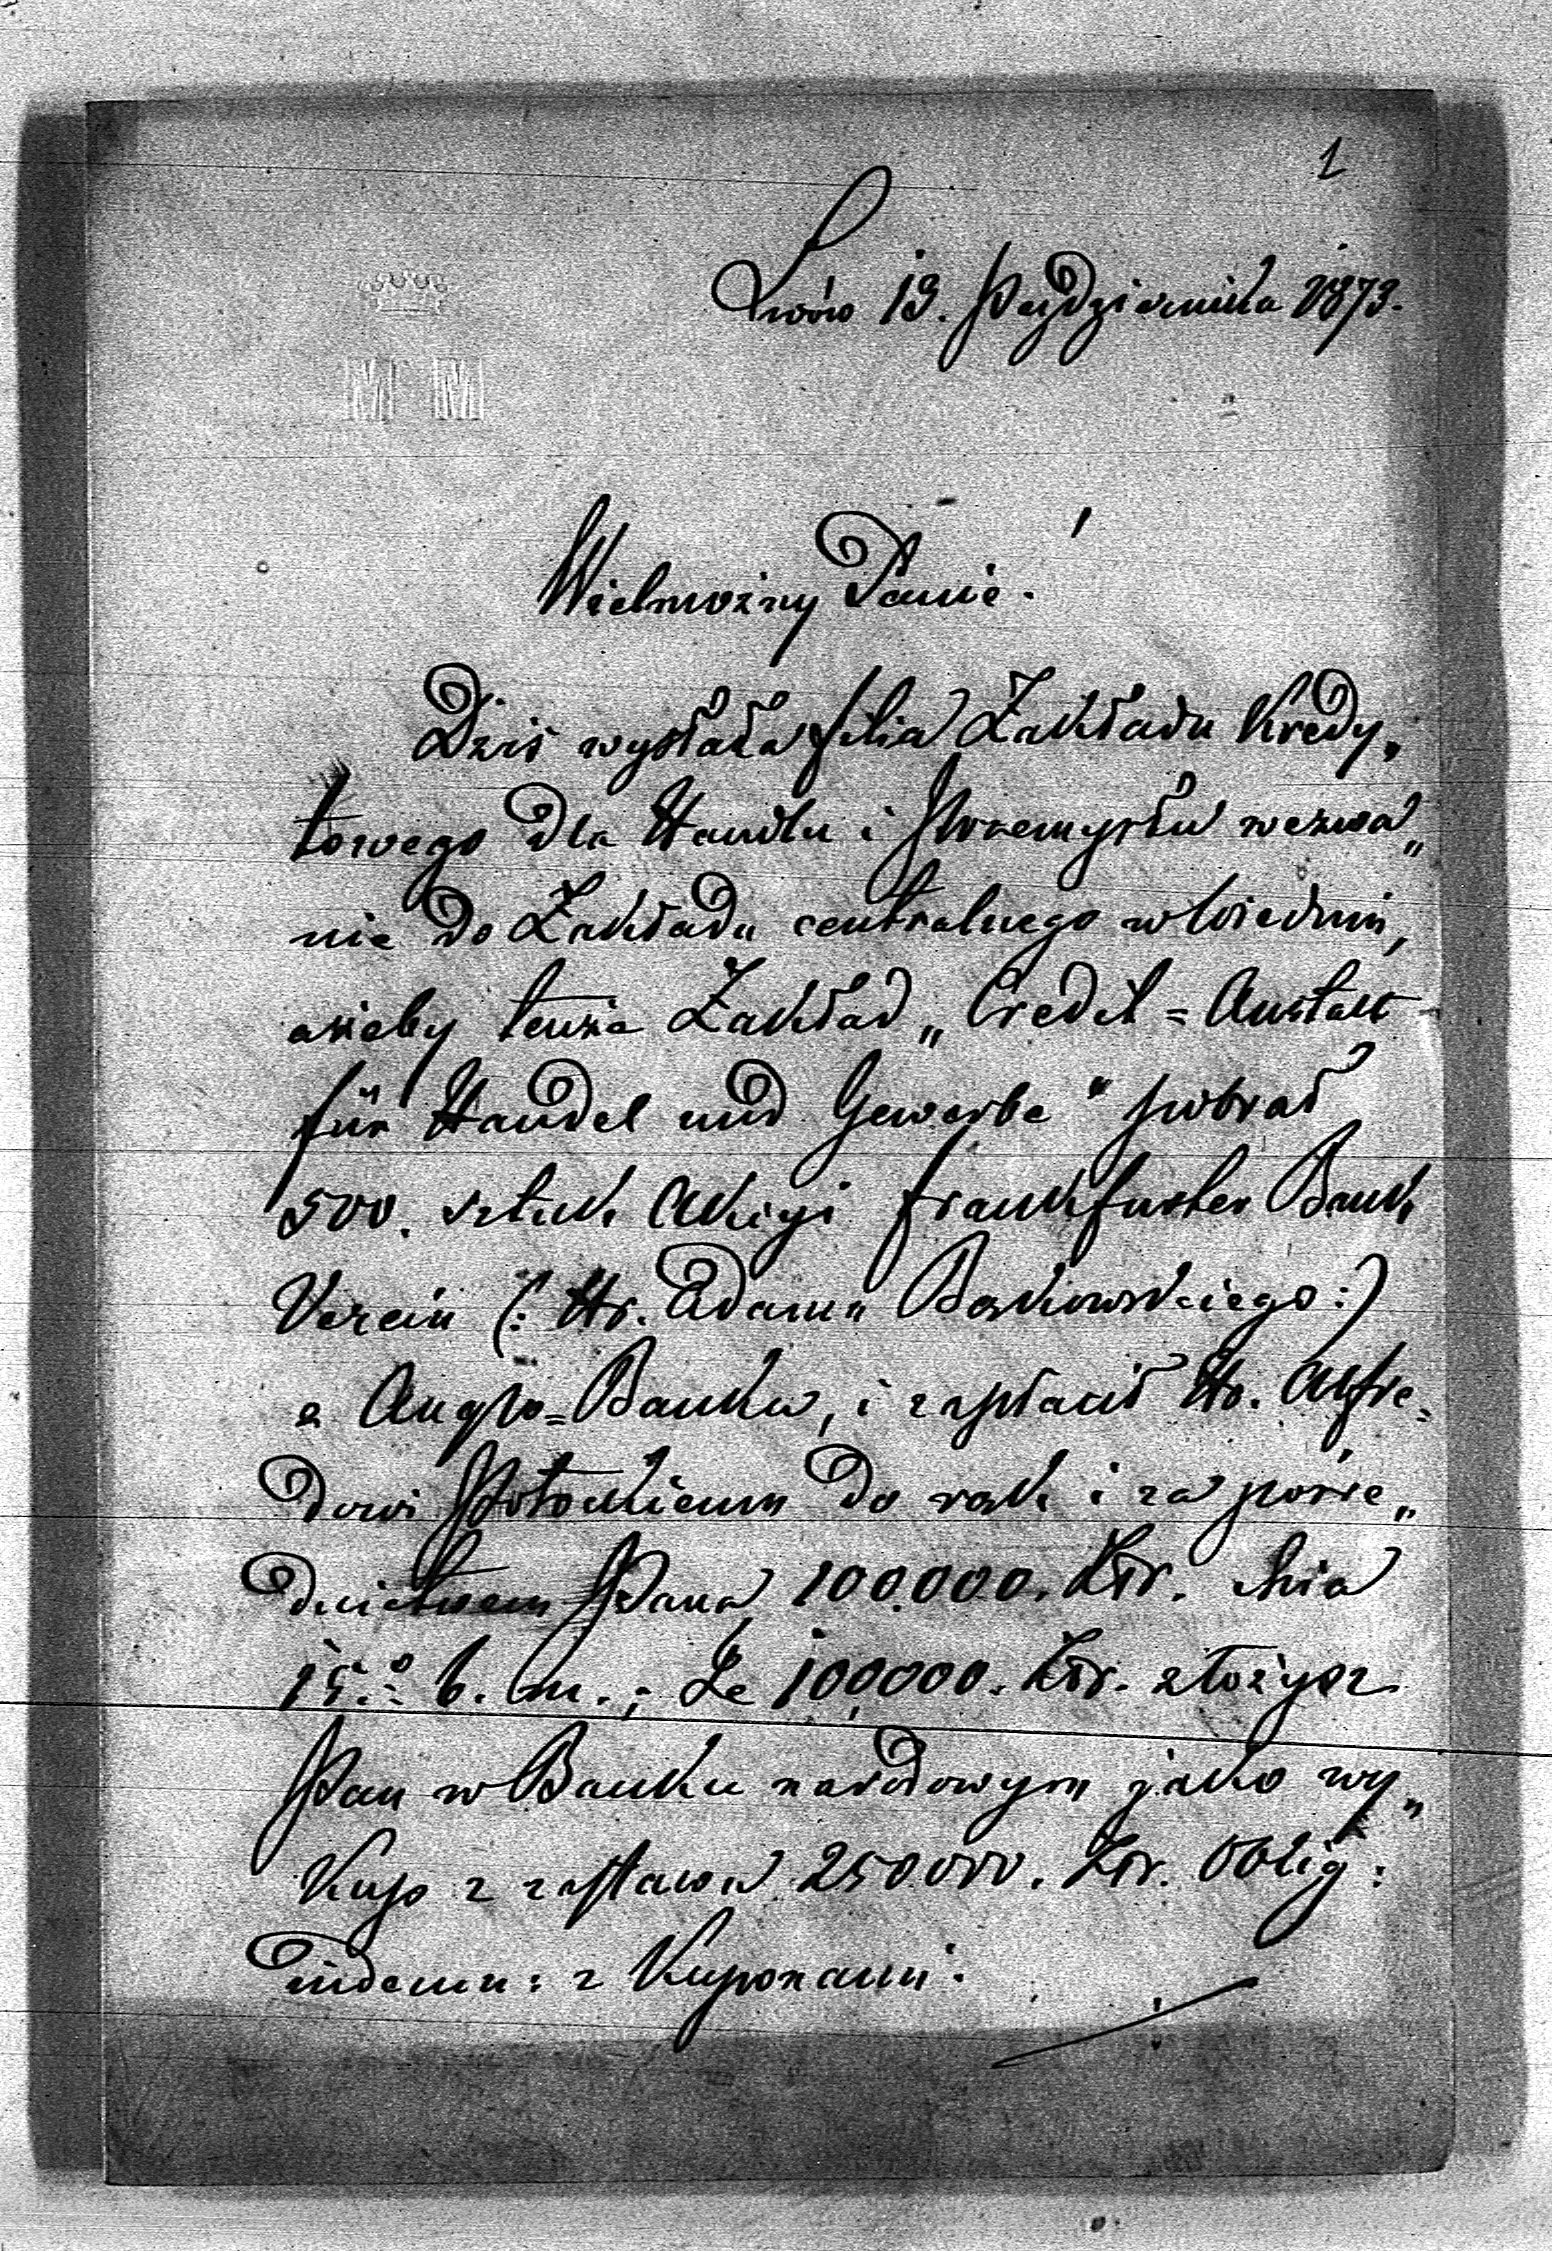 1
Lwów 13. Października 1873.
Wielmożny Panie!
Dziś wysłała filia Zakładu Kredy„
towego dla Handlu i Przemysłu wezwa„
nie do Zakładu centralnego w Wiedniu,
ażeby tenże Zakład „Credit=Anstalt
für Handel und Gewerbe" pobrał
500. sztuk Akcyi Frankfurter Bank
Verein (: Hr. Adama Borkowskiego :)
z Anglo=Banku, i zapłacił Hr. Alfre=
dowi Potockiemu do rąk i za pośre„
dnictwem Pana 100.000. Złr. dnia
15.º b. m.; Te 100,000. Złr. złożysz
Pan w Banku narodowym jako wy„
kup z zastawu 250000. Złr. Oblig:
indemn: z Kuponami.